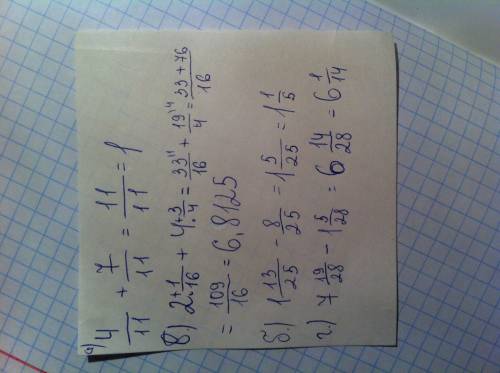 а) 4/11 + 7/11 = 11/11 = 1
в) 2 1/16 + 4 3/4 = 33/16 + 19/4 = 33+76/16
= 109/16 = 6,8125
б.) 1 13/25 - 8/25 = 1 5/25 = 1 1/5
г.) 7 19/28 - 1 5/28 = 6 14/28 = 6 1/14